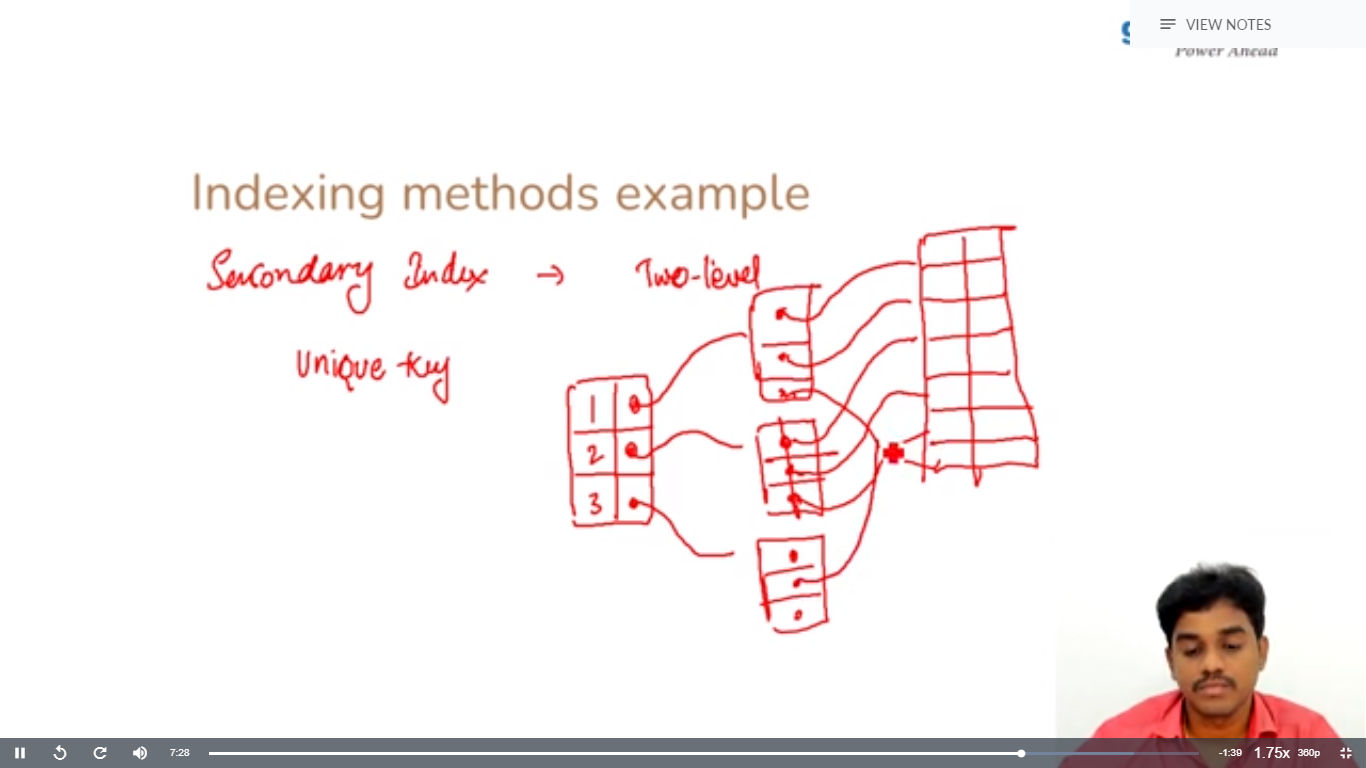 VIEW NOTES
Power Ahead
Indexing methods example
Secondary Index → Two-level
Unique key
1
2
3
7:28
-1:39
1.75x
360p